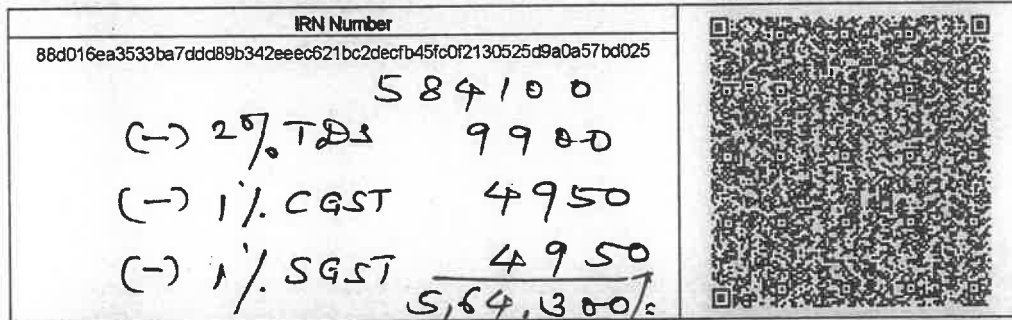 IRN Number
88d016ea3533ba7ddd89b342eeec621bc2decfb45fc0f2130525d9a0a57bd025
584100
(-) 2% TDS 9900
(-) 1% CGST 4950
(-) 1% SGST 4950
5,64,300/=